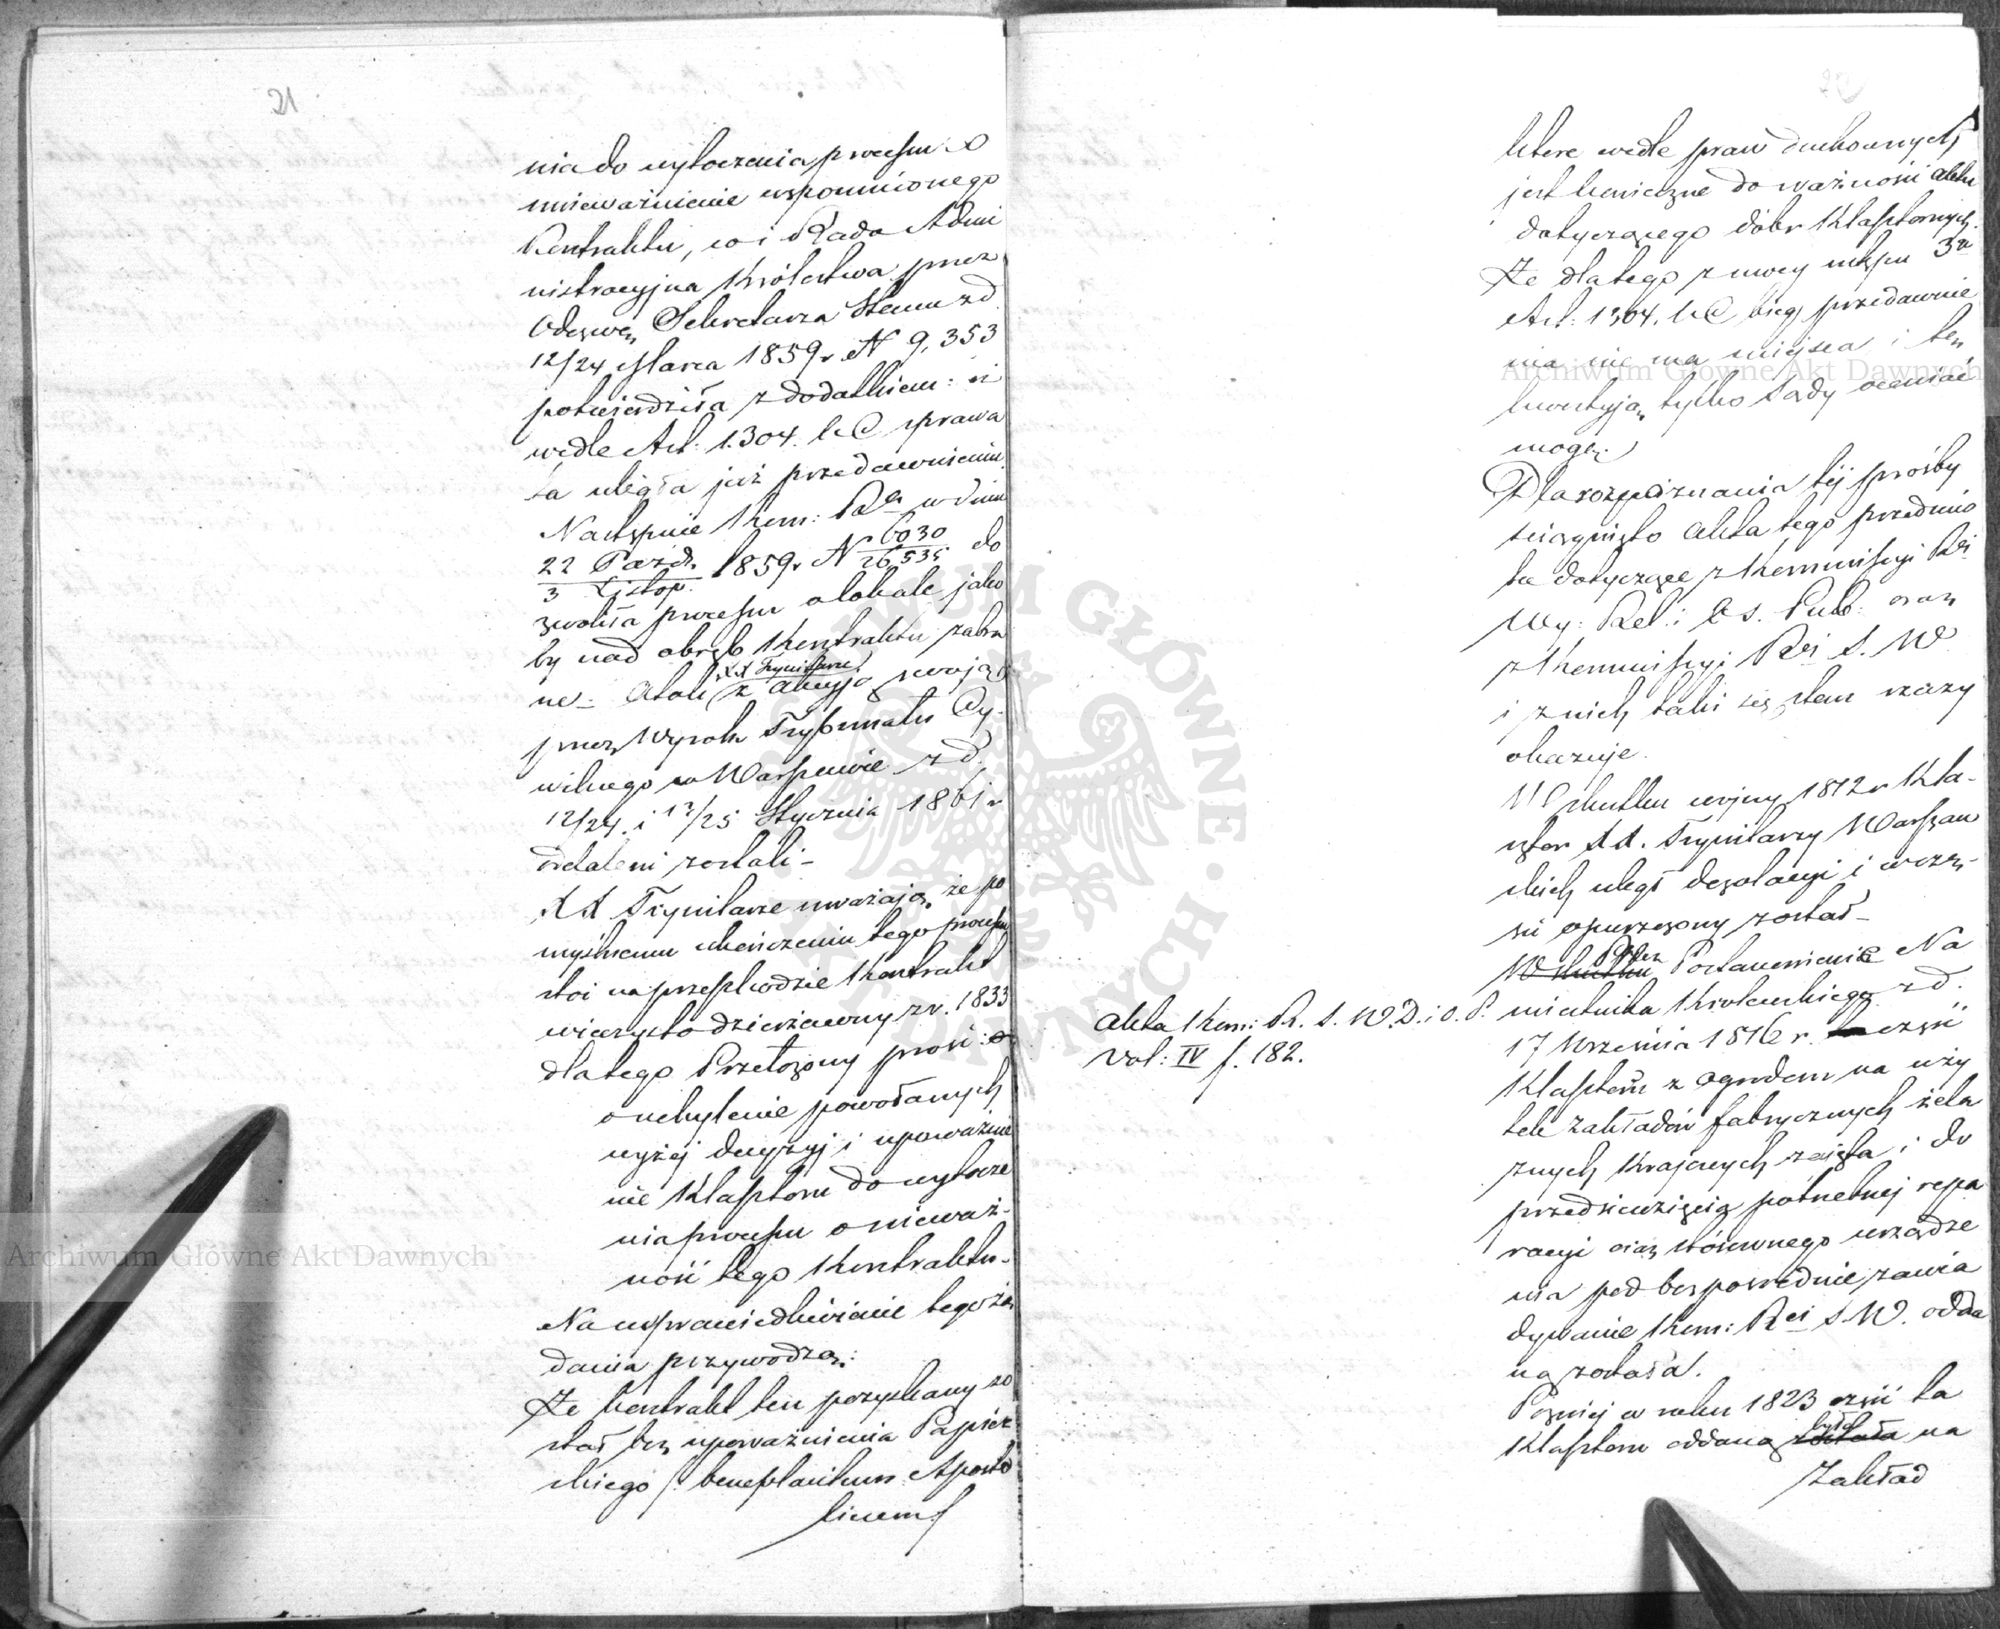 21
nia do wytoczenia procesu o
unieważnienie wspomnionego
Kontraktu, co i Rada Admi
nistracyjna Królestwa przez
Odezwę Sekretarza Stanu z d.
12/24 Marca 1859 r. N 9,353
potwierdziła z dodatkiem: iż
wedle Art: 1.304. k C sprawa
ta uległa już przedawnieniu.
Następnie Kom: Ra w dniu
22 Paźdz. / 3 Listop. 1859 r N 6030 / 26535 do
zwoliła procesu o lokale jako
by nad obręb Kontraktu zabra
ne. Atoli XX Trynitarze z akcyją swoją
przez Wyrok Trybunału Cy-
wilnego w Warszawie z d.
12/24. i 13/25 Stycznia 1861 r
oddaleni zostali -
XX Trynitarze uważają, że po
myślnemu ukończeniu tego procesu
stoi na przeszkodzie Kontrakt
wieczysto dzierżawny z r. 1833
dlatego Przełożony prosi:
o uchylenie powołanych
wyżej decyzyj i upoważnie
nie Klasztoru do wytocze
nia procesu o nieważ-
ność tego Kontraktu.
Na usprawiedliwienie tego żą
dania przywodzą:
Że kontrakt ten pozyskany zo
stał bez upoważnienia Papiez
kiego /: beneplacitum Aposto
licum /
które wedle praw duchownych
jest konieczne do ważności aktu
dotyczącego dóbr Klasztornych.
Że dlatego z mocy ustępu 3o
Art: 1304. k C bieg przedawnie
nia nie ma miejsca i tę
kwestyją tylko Sądy oceniać
mogą.
Dla rozpoznania téj prośby
ściągnięto Akta tego przedmio
tu dotyczące z Kommissyi Rei
Wy: Rel: i Oś. Pub: oraz
z Kommissyi Rei S. W.
i z nich taki się stan rzeczy
okazuje.
W skutku wojny 1812 r Kla-
sztor XX. Trynitarzy Warszaw
skich uległ dezolacyi i w czę-
ści opuszczony został -
W skutku Przez Postanowienie Na
miestnika Królewskiego z d.
17 Września 1816 r. część
Klasztoru z ogrodem na uży
tek Zakładów fabrycznych żela
znych Krajowych zajęta i do
przedsięwzięcia potrzebnej repa
racyi oraz stósownego urządze
nia pod bezpośrednie zawia
dywanie Kom: Rei S. W. odda
ną została.
Poźniej w roku 1823 część ta
Klasztoru oddaną została była na
Zakład
Akta Kom: R. S. W. D. i O. P.
Vol: IV f. 182.
Archiwum Główne Akt Dawnych
Archiwum Główne Akt Dawnych
ARCHIWUM GŁÓWNE · AKT DAWNYCH ·